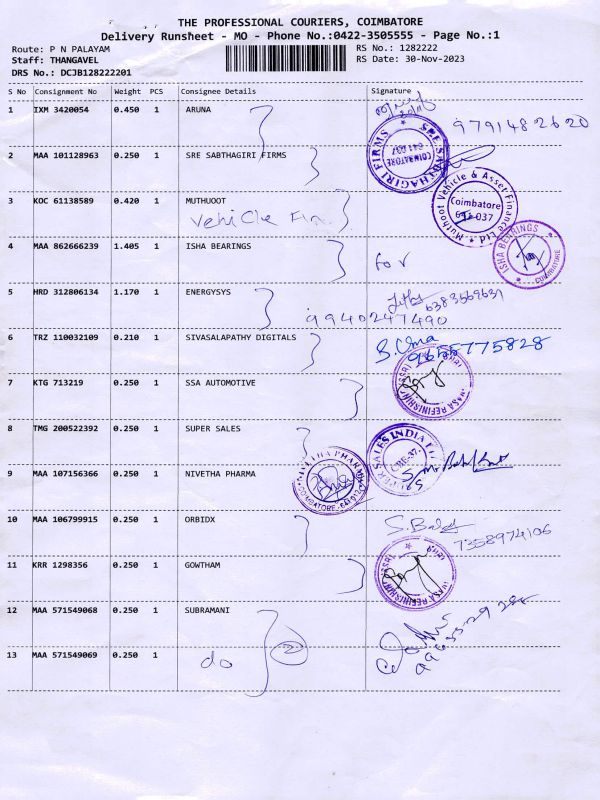 THE PROFESSIONAL COURIERS, COIMBATORE
Delivery Runsheet - MO - Phone No.:0422-3505555 - Page No.:1
Route: P N PALAYAM RS No.: 1282222
Staff: THANGAVEL RS Date: 30-Nov-2023
DRS No.: DCJB128222201
S No Consignment No Weight PCS Consignee Details Signature
1 IXM 3420054 0.450 1 ARUNA
9791482620
SRE SABTHAGIRI FIRMS COIMBATORE 641 037
2 MAA 101128963 0.250 1 SRE SABTHAGIRI FIRMS
3 KOC 61138589 0.420 1 MUTHUOOT
Vehicle Fin.
Muthoot Vehicle & Asset Finance Coimbatore 641 037
4 MAA 862666239 1.405 1 ISHA BEARINGS
for
ISHA BEARINGS COIMBATORE
5 HRD 312806134 1.170 1 ENERGYSYS
6383569631
9940247490
6 TRZ 110032109 0.210 1 SIVASALAPATHY DIGITALS
S. Uma
9655775828
7 KTG 713219 0.250 1 SSA AUTOMOTIVE
8 TMG 200522392 0.250 1 SUPER SALES
SALES INDIA CBE-37.
9 MAA 107156366 0.250 1 NIVETHA PHARMA
NIVETHA PHARMA COIMBATORE
10 MAA 106799915 0.250 1 ORBIDX
7358974106
11 KRR 1298356 0.250 1 GOWTHAM
12 MAA 571549068 0.250 1 SUBRAMANI
2
13 MAA 571549069 0.250 1
do